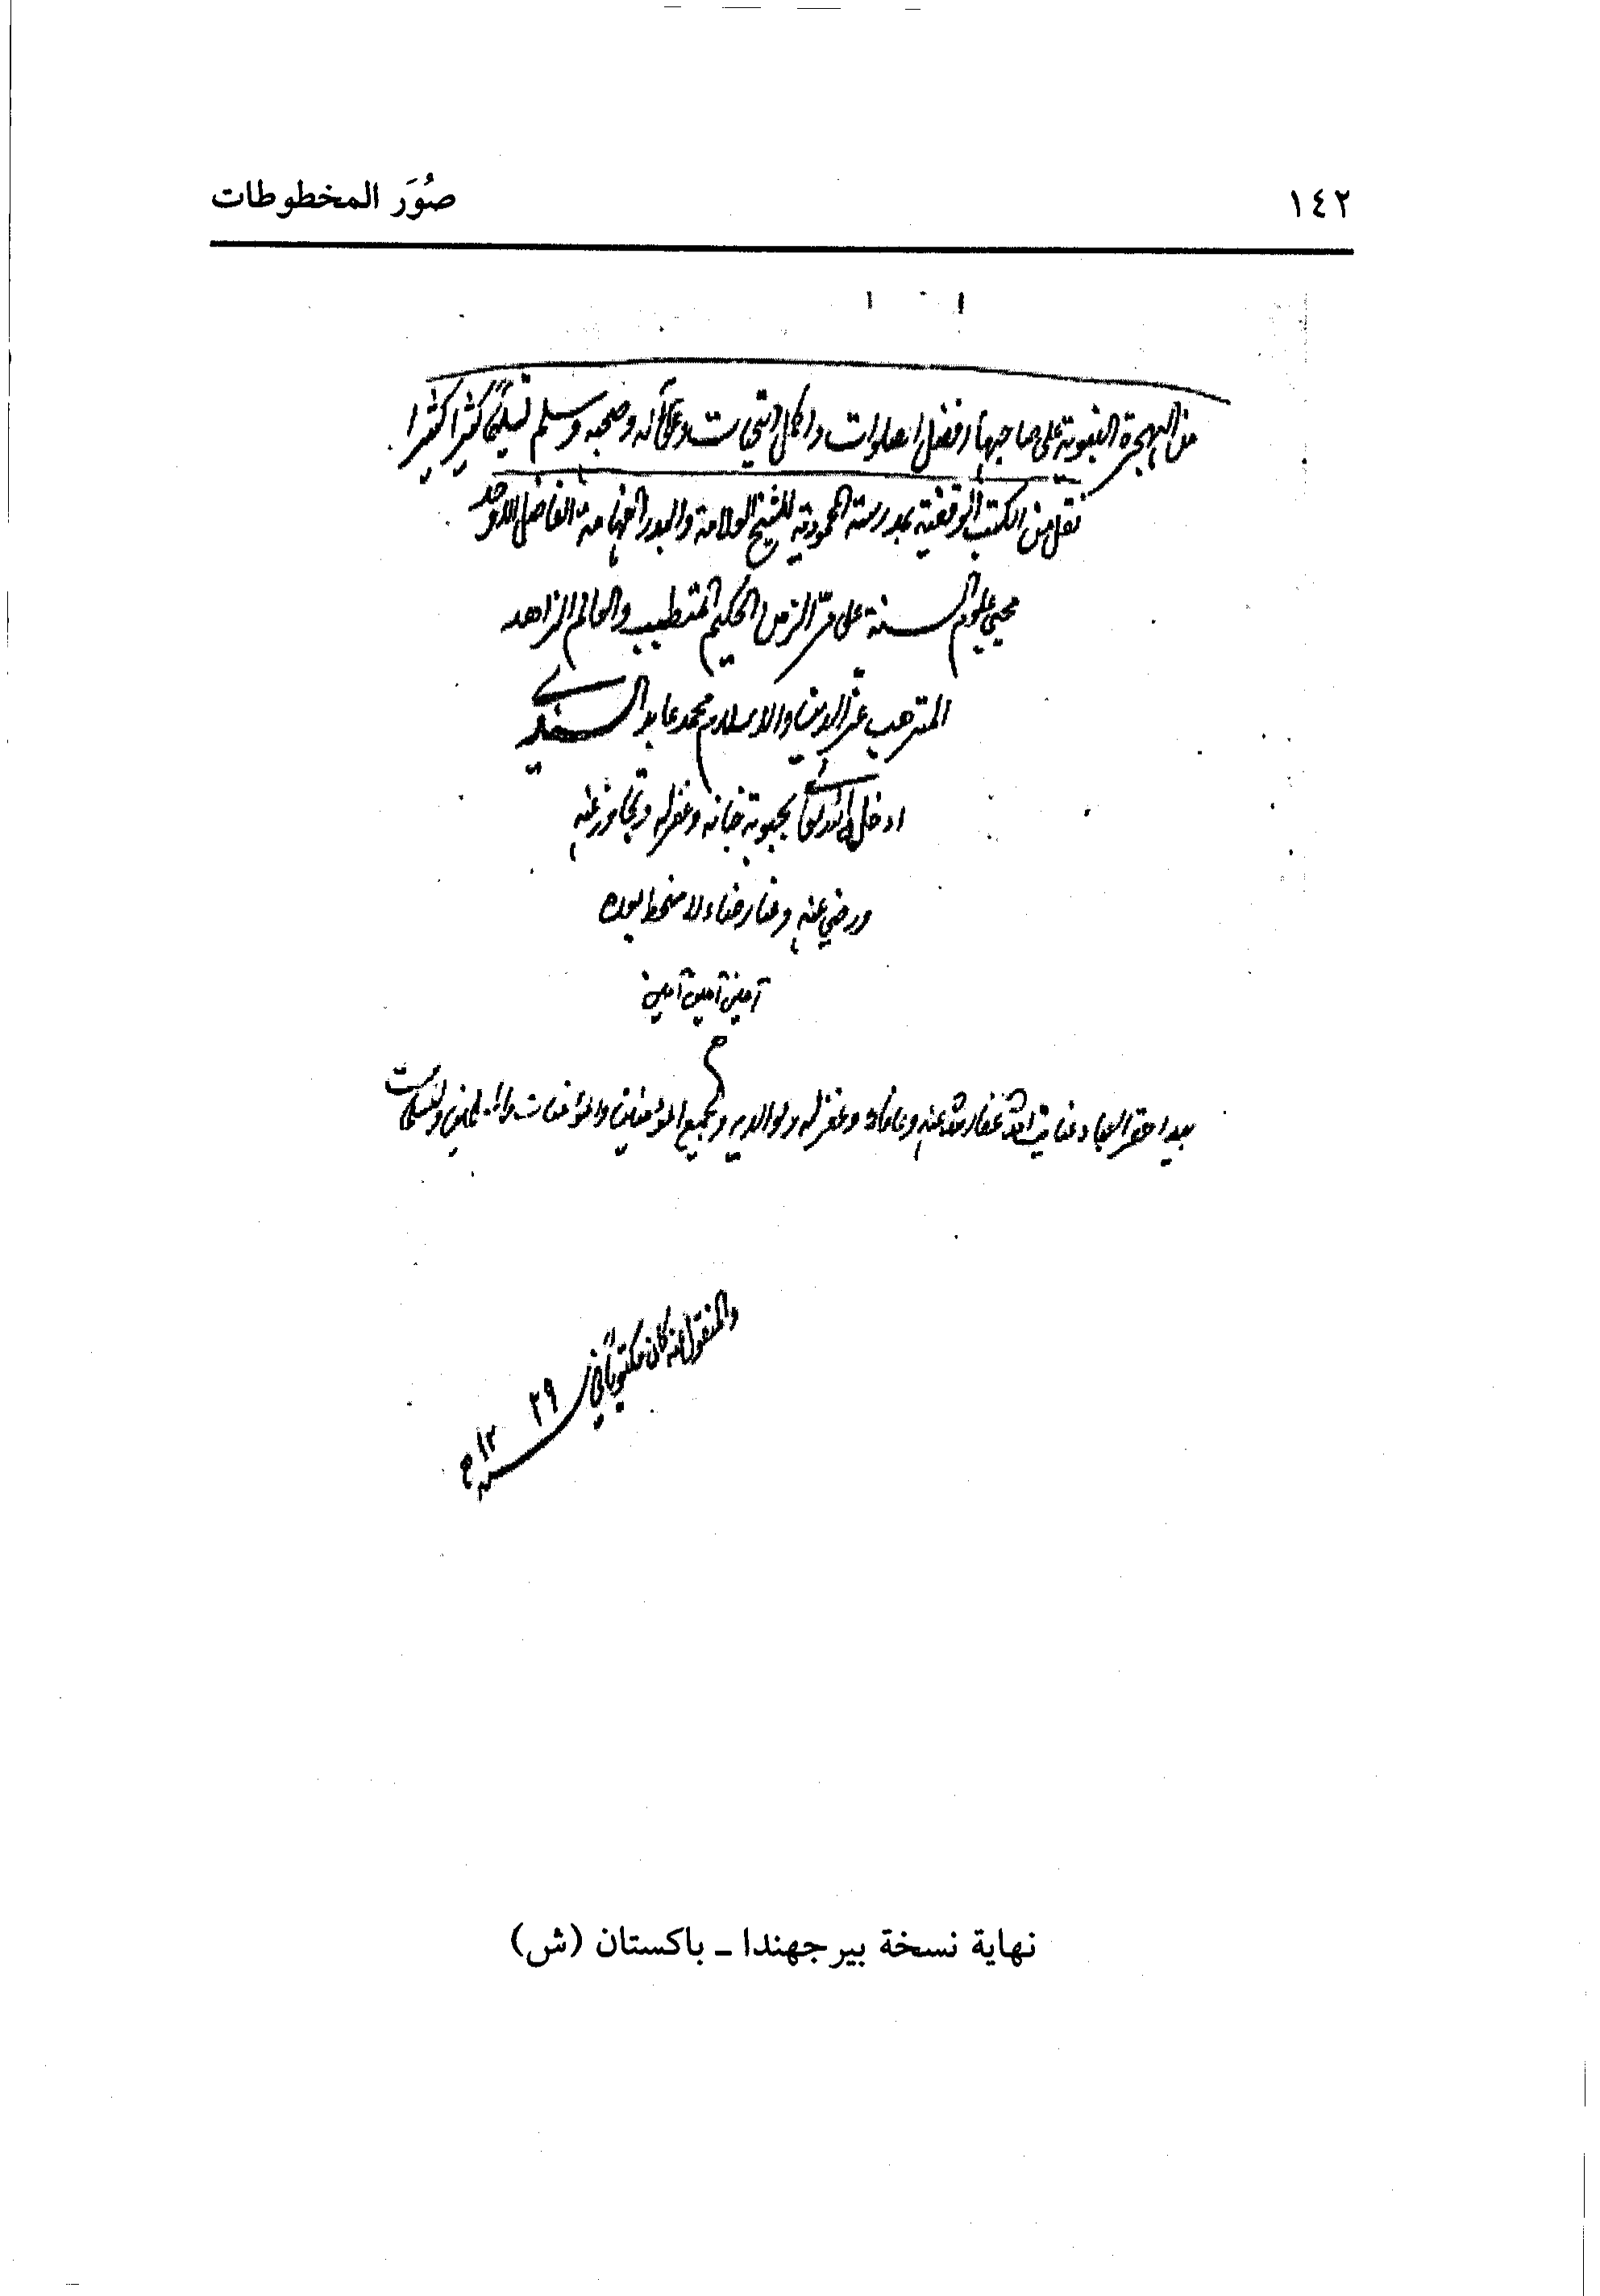 ١٤٢
صُوَر المخطوطات
من الهجرة النبوية على صاحبها افضل الصلوات واكمل التحيات وعلى آله وصحبه وسلم تسليمًا كثيرا كثيرا
نقل من الكتب الوقفية بمدرسة المحمودية للشيخ العلامة والبدر الفهامة الفاضل الاوحد
محيي علوم السنة على مر الزمن الحكيم المتطبب والعالم الزاهد
المترهب عز الدين والاسلام محمد عابد السندي
ادخل الله تعالى بحبوبة جنانه وغفر له وتجاوز عنه
ورضي عنه وعنا رضاء لا سخط بعده
آمين آمين آمين
بيد احقر العباد عنايت الله غفار الله عنه وعافاه وغفر له ولوالديه ولجميع المؤمنين والمؤمنات والمسلمين والمسلمات
والمنقول عنه كان مكتوبًا في سنة ١٢٢٩ ه
نهاية نسخة بير جهندا ـ باكستان (ش)